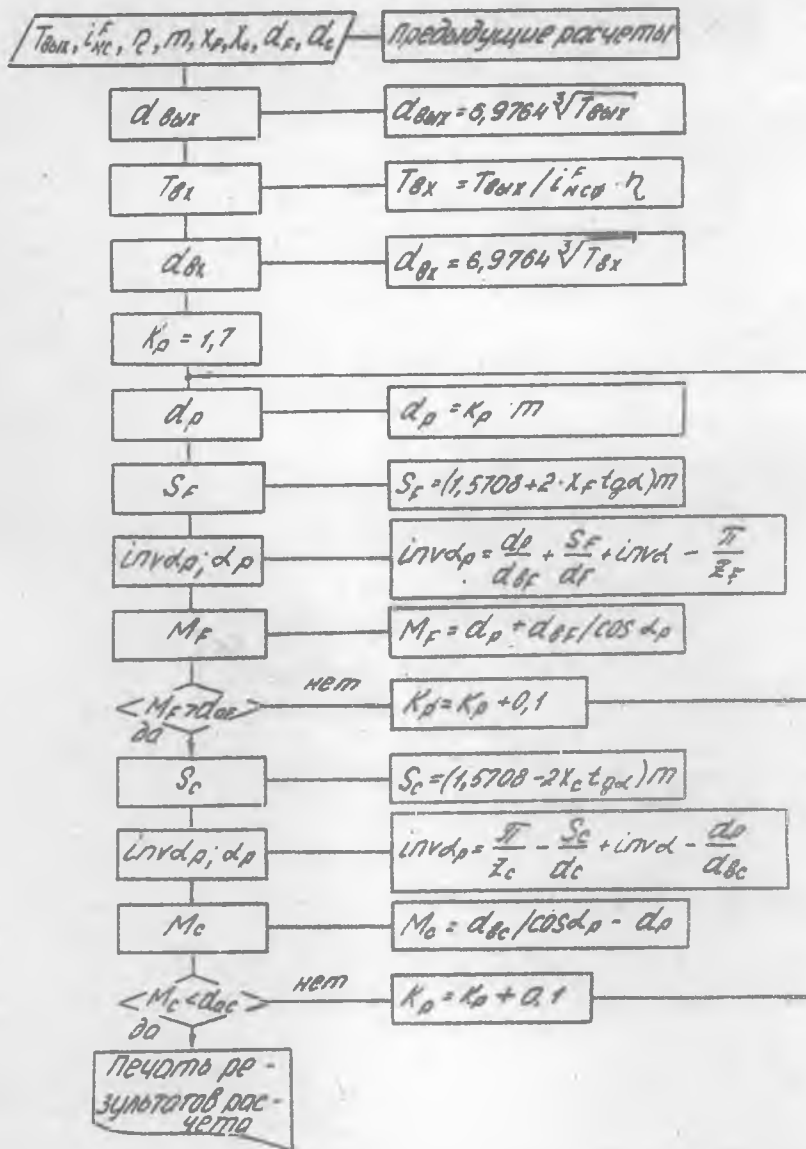 Tвых, i^F_нс, η, m, x_F, x_c, d_F, d_c
предыдущие расчеты
d вых
d вых = 6,9764 ∛Tвых
Tвх
Tвх = Tвых / i^F_нсφ · η
d вх
d вх = 6,9764 ∛Tвх
Kp = 1,7
dp
dp = Kp · m
S_F
S_F = (1,5708 + 2 · x_F tgα) m
invαp; αp
invαp = dp/d_вF + S_F/d_F + invα - π/z_F
M_F
M_F = dp + d_вF / cos αp
M_F > d_aF
нет
Kp = Kp + 0,1
да
S_c
S_c = (1,5708 - 2x_c tgα) m
invαp; αp
invαp = π/z_c - S_c/d_c + invα - dp/d_вc
M_c
M_c = d_вc / cosαp - dp
M_c < d_ac
нет
Kp = Kp + 0,1
да
Печать ре-
зультатов рас-
чета